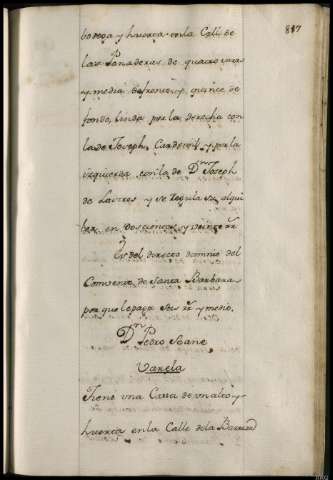 817
bodega y huerta en la Calle de
las Panaderas de quatro varas
y media de frente, y quince de
fondo, linda por la derecha con
la de Joseph Cardero y por la
izquierda con la de Dn. Joseph
de Lavres y se regula su alqui
ler en Doscientos, y veinte rr.
Es del directo dominio del
Convento de Santa Barbara
por que le paga seis rr. y medio.
Dn. Pedro Seane
Varela
Tiene una Casa de un alto y
huerta en la Calle de la